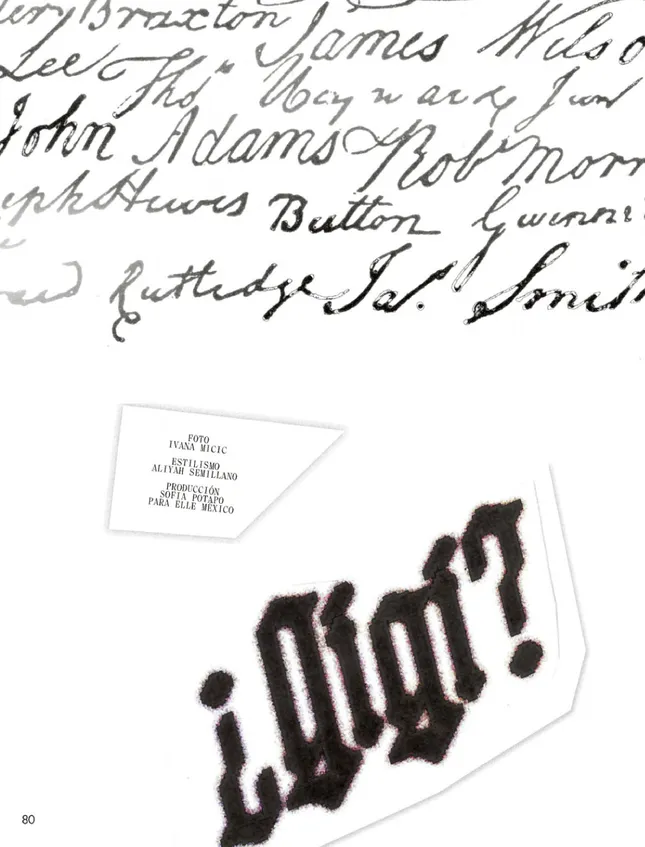 Braxton James Wilso
Lee Tho Heyward Jun
John Adams Rob Morr
eph Hewes Button Gwinn
Rutledge Ja. Smith
FOTO
IVANA MICIC
ESTILISMO
ALIYAH SEMILLANO
PRODUCCIÓN
SOFIA POTAPO
PARA ELLE MÉXICO
¿Gigi?
80